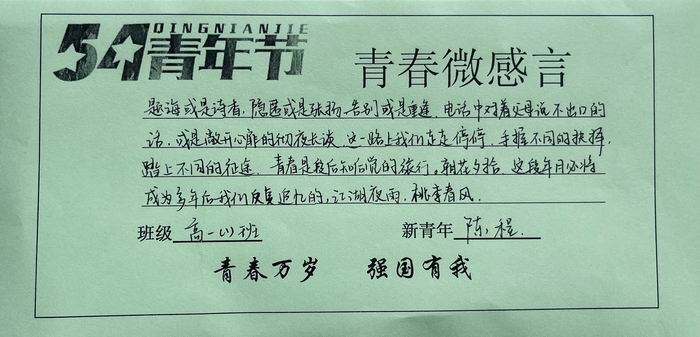 QINGNIANJIE
54青年节
青春微感言
题海或是诗者，隐匿或是张扬，告别或是重逢，电话中对着父母说不出口的
话，或是敞开心扉的彻夜长谈，这一路上我们走走停停，手握不同的抉择，
踏上不同的征途。青春是段后知后觉的旅行。朝花夕拾，这段年月必将
成为多年后我们反复追忆的，江湖夜雨，桃李春风。
班级 高一(1)班 新青年 陈程
青春万岁 强国有我